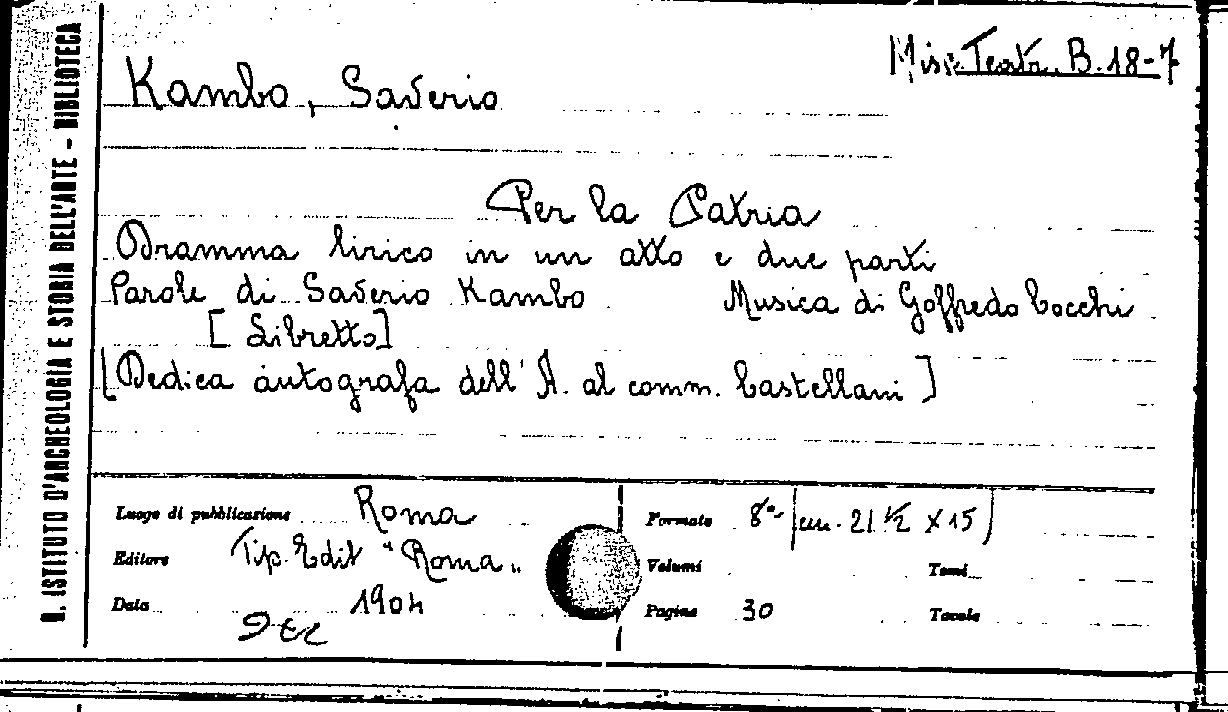 Misc. Teatr. B. 18-7
Kambo, Saverio
Per la Patria
Dramma lirico in un atto e due parti
Parole di Saverio Kambo Musica di Goffredo Cocchi
[Libretto]
[Dedica autografa dell'A. al comm. Castellani]
R. ISTITUTO D'ARCHEOLOGIA E STORIA DELL'ARTE - BIBLIOTECA
Luogo di pubblicazione Roma
Editore Tip. Edit "Roma"
Data 1904
Formato 8° (cm. 21 ½ x 15)
Volumi Tomi
Pagine 30 Tavole